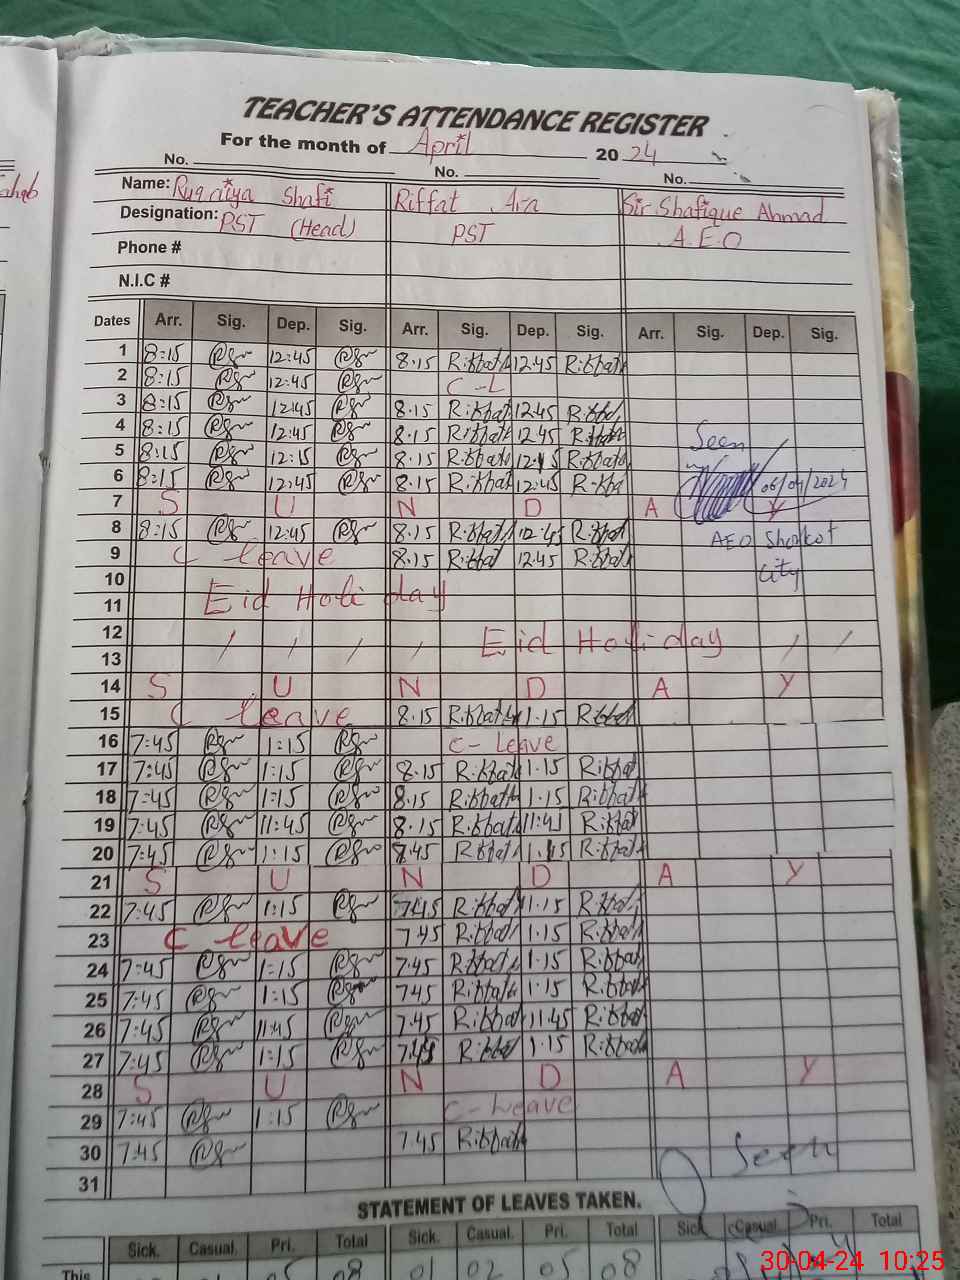 TEACHER'S ATTENDANCE REGISTER
For the month of April 2024
No. No. No.
Name: Ruqaiya Shafi Riffat Ara Sir Shafique Ahmad
Designation: PST (Head) PST A.E.O
Phone #
N.I.C #
Dates Arr. Sig. Dep. Sig. Arr. Sig. Dep. Sig. Arr. Sig. Dep. Sig.
1 8:15 12:45 8.15 Riffat 12.45 Riffat
2 8:15 12:45 C-L
3 8:15 12:45 8.15 Riffat 12.45
4 8:15 12:45 8.15 Riffat 12.45 Seen
5 8:15 12:15 8.15 Riffat Riffat
6 8:15 12:45 8.15 Riffat 12:45 06/04/2024
7 S U N D A Y
8 8:15 12:45 8.15 Riffat 12.45 Riffat AEO Shorkot
9 C leave 8.15 Riffat 12.45 Riffat City
10
11 Eid Holi day
12 Eid Holiday
13
14 S U N D A Y
15 C leave 8.15 Riffat 1.15
16 7:45 1:15 C-Leave
17 7:45 1:15 8.15 Riffat 1.15 Riffat
18 7:45 1:15 8.15 Riffat 1.15 Riffat
19 7:45 11:45 8.15 Riffat Riffat
20 7:45 1:15 8.45 Riffat 1.15 Riffat
21 S U N D A Y
22 7:45 1:15 7.45 Riffat 1.15 Riffat
23 C leave 7.45 Riffat 1.15 Riffat
24 7:45 1:15 7.45 Riffat 1.15 Riffat
25 7:45 1:15 7.45 Riffat 1.15 Riffat
26 7:45 11:45 7.45 Riffat 11.45 Riffat
27 7:45 1:15 1.15 Riffat
28 S U N D A Y
29 7:45 1:15 C-Leave
30 7:45 7.45 Riffat Seen
31
STATEMENT OF LEAVES TAKEN.
Sick. Casual. Pri. Total Sick. Casual. Pri. Total Sick Casual. Pri. Total
This 05 08 01 02 05 08
30-04-24 10:25